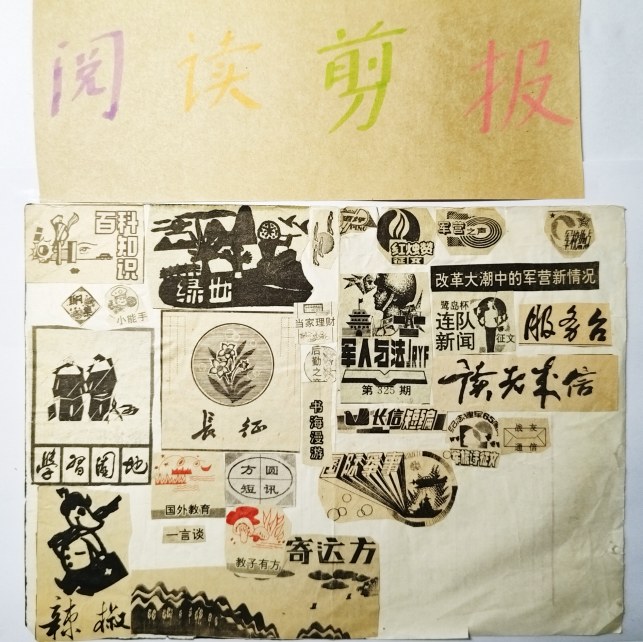 阅读剪报
百科知识
绿地
红烛赞
征文
军营
改革大潮中的军营新情况
小能手
当家理财
后勤之
鹭岛杯
连队
新闻
征文
服务台
军人与法 JRYF
第325期
读者来信
长征
书海漫游
长信短编
学习园地
国防军事
方圆
短讯
国外教育
一言谈
教子有方
寄远方
辣椒